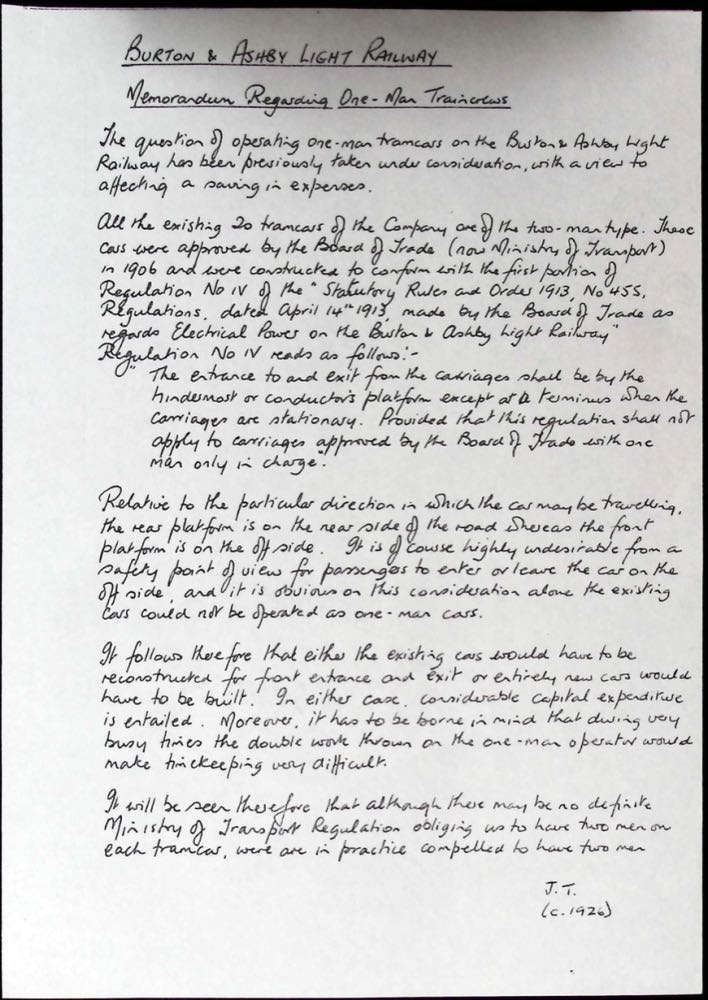 BURTON & ASHBY LIGHT RAILWAY
Memorandum Regarding One-Man Traincrews
The question of operating one-man tramcars on the Burton & Ashby Light
Railway has been previously taken under consideration, with a view to
affecting a saving in expenses.
All the existing 20 tramcars of the Company are of the two-man type. These
cars were approved by the Board of Trade (now Ministry of Transport)
in 1906 and were constructed to conform with the first portion of
Regulation No IV of the "Statutory Rules and Orders 1913, No 455,
Regulations, dated April 14th 1913, made by the Board of Trade as
regards Electrical Power on the Burton & Ashby Light Railway"
Regulation No IV reads as follows:-
"The entrance to and exit from the carriages shall be by the
hindermost or conductor's platform except at a terminus when the
carriages are stationary. Provided that this regulation shall not
apply to carriages approved by the Board of Trade with one
man only in charge."
Relative to the particular direction in which the car may be travelling,
the rear platform is on the near side of the road whereas the front
platform is on the off side. It is of course highly undesirable from a
safety point of view for passengers to enter or leave the car on the
off side, and it is obvious on this consideration alone the existing
cars could not be operated as one-man cars.
It follows therefore that either the existing cars would have to be
reconstructed for front entrance and exit or entirely new cars would
have to be built. In either case, considerable capital expenditure
is entailed. Moreover, it has to be borne in mind that during very
busy times the double work thrown on the one-man operator would
make timekeeping very difficult.
It will be seen therefore that although there may be no definite
Ministry of Transport Regulation obliging us to have two men on
each tramcar, were are in practice compelled to have two men
J.T.
(c.1926)